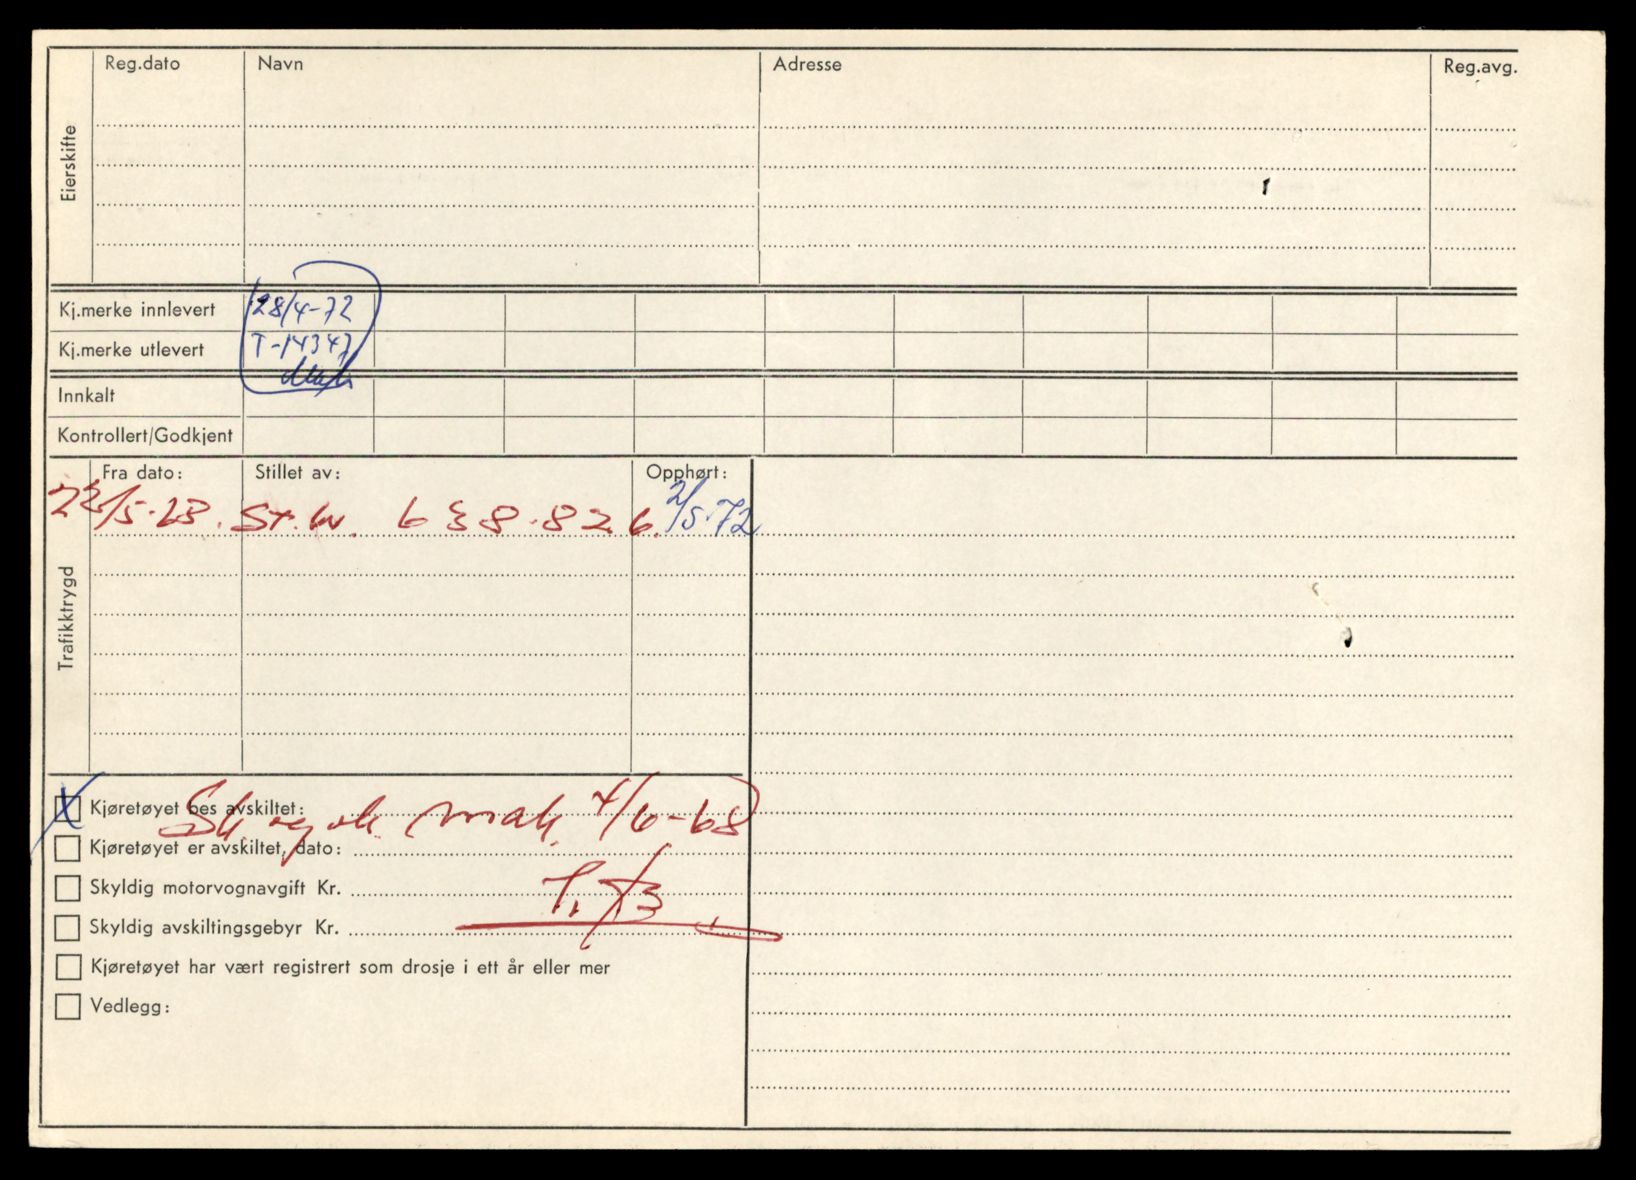 Eierskifte
Reg.dato Navn Adresse Reg.avg.
Kj.merke innlevert 28/4-72
Kj.merke utlevert T-14347
Innkalt
Kontrollert/Godkjent
Trafikktrygd
Fra dato: Stillet av: Opphørt:
22/5-68. St.W. 638.826. 2/5-72
X Kjøretøyet bes avskiltet:
Sk og ok mak 4/6-68
Kjøretøyet er avskiltet, dato:
Skyldig motorvognavgift Kr.
Skyldig avskiltingsgebyr Kr.
Kjøretøyet har vært registrert som drosje i ett år eller mer
Vedlegg: